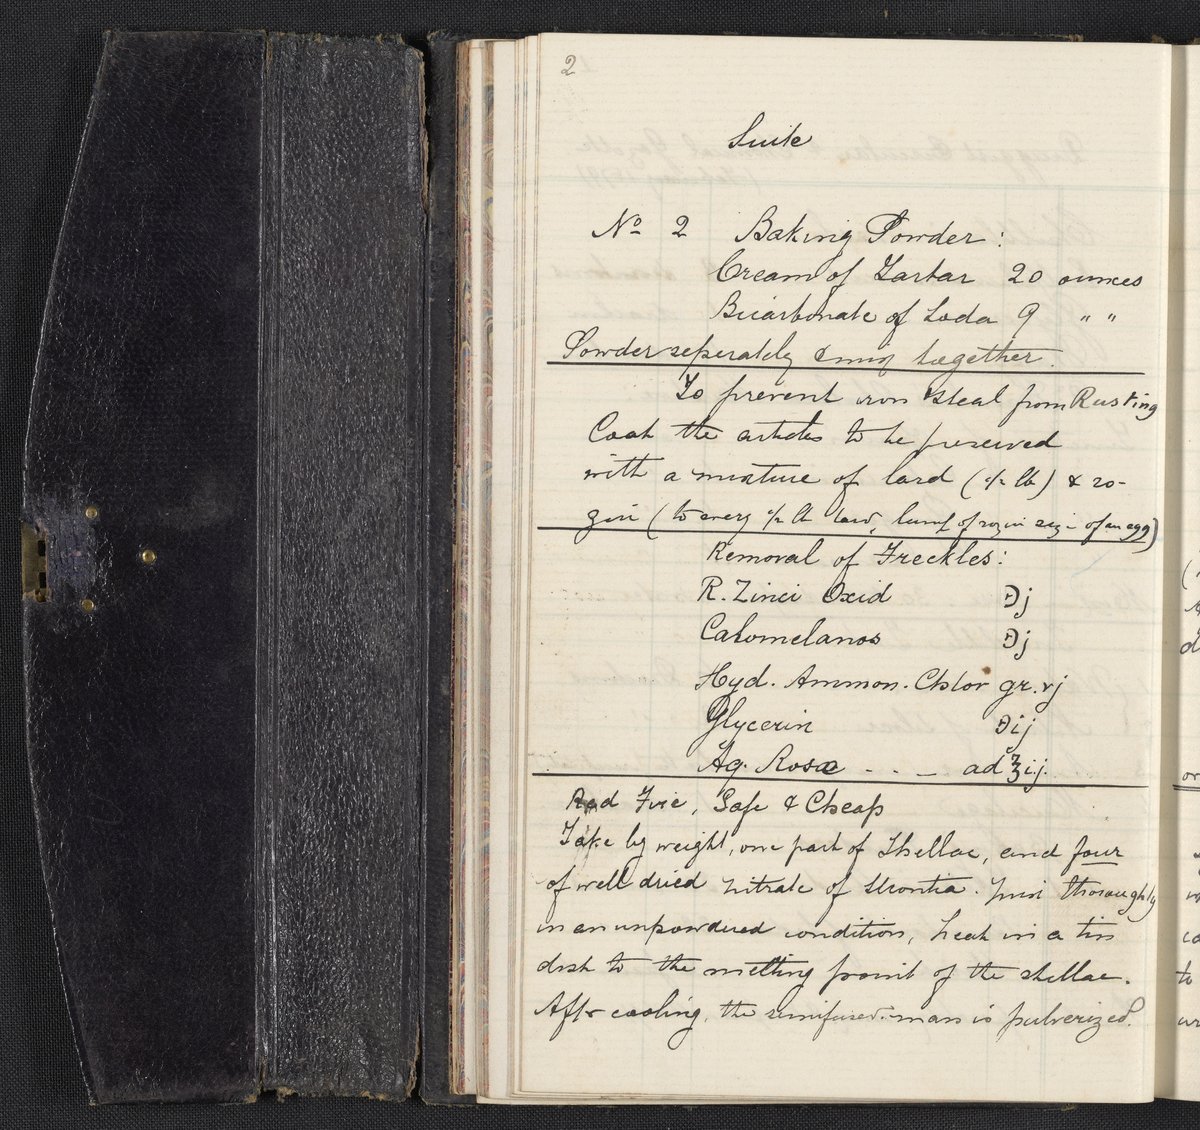 2
Suite
No 2 Baking Powder :
Cream of Tartar 20 ounces
Bicarbonate of Soda 9 " "
Powder seperately & mix together.
To prevent iron & steal from Rusting
Coat the articles to be preserved
with a mixture of lard (1/2 lb) & ro-
zin (to every 1/2 lb lard, lump of rozin size of an egg)
Removal of Freckles :
R. Zinci Oxid ℈j
Calomelanos ℈j
Hyd. Ammon. Chlor gr. vj
Glycerin ℈ij
Aq. Rosæ . . _ ad ℥ij.
Red Fire, Safe & Cheap
Take by weight, one part of Shellac, and four
of well dried nitrate of Strontia. Mix thoroughly
in an unpowdered condition, heat in a tin
dish to the melting point of the shellac.
After cooling, the semifused mass is pulverized.